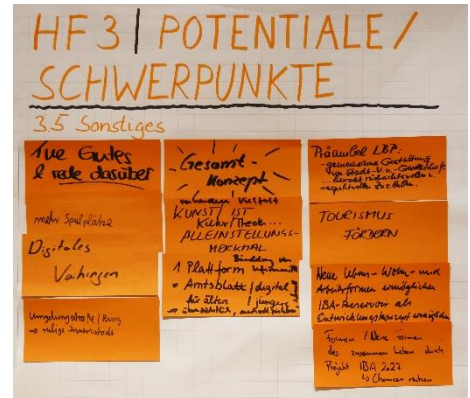 HF 3 | POTENTIALE /
SCHWERPUNKTE
3.5 Sonstiges
Tue Gutes
& rede darüber
mehr Spielplätze
Digitales
Vaihingen
Umgehungsstraße / Ring
→ ruhige Innenstadt
Gesamt-
Konzept
Vielfalt
KUNST IST
Kultur/Theater...
ALLEINSTELLUNGS-
MERKMAL
Bündelung von
1 Plattform
= Amtsblatt/digital
für ältere / jüngere
→ übersichtlich,
Präambel LBP:
gemeinsame Gestaltung
von Stadt- u.
TOURISMUS
FÖRDERN
Neue Lebens-, Wohn- und
Arbeitsformen ermöglichen
IBA-Reservoir als
Entwicklungskonzept ermöglichen
Formen / Neue Formen
des zusammen Leben durch
Projekt IBA 2027
↳ Chancen nutzen